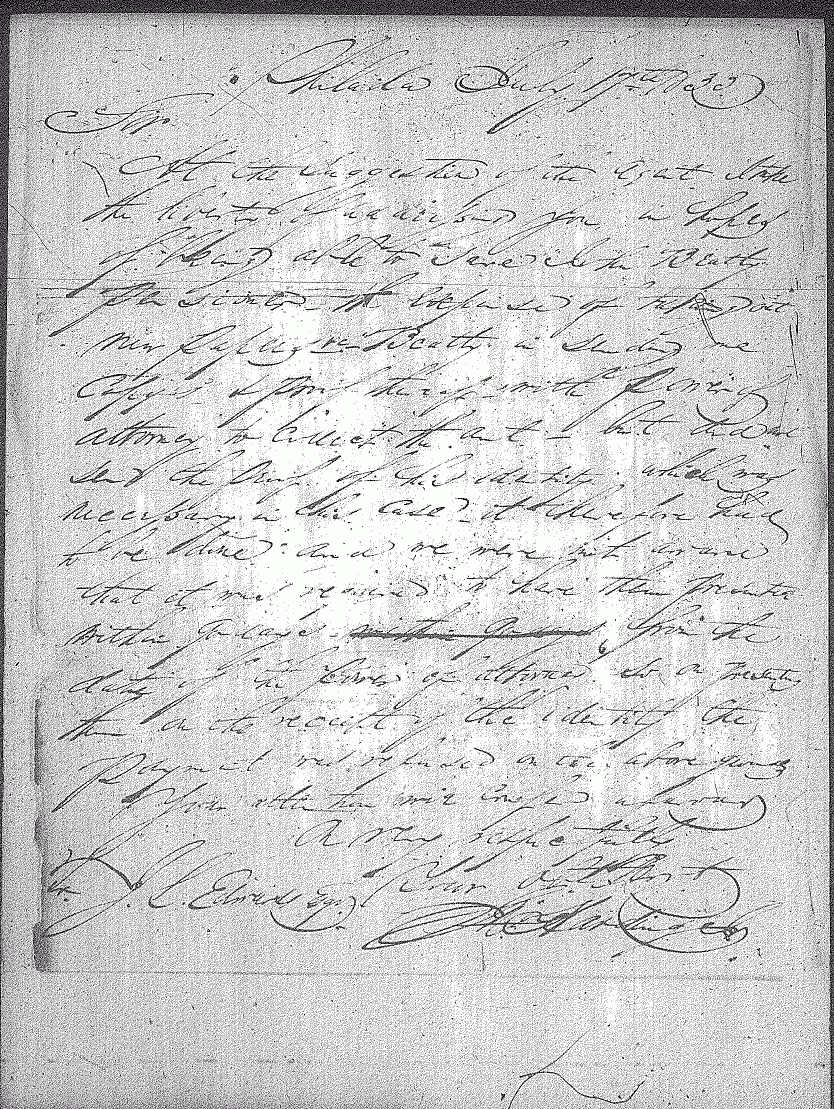 Philada July 17th 1833
Sir
At the Suggestion of the Agent I take
the liberty of addressing you in hopes
of being able to Save John Beatty
Pensioner the Expense of
new Papers Mr Beatty in sending me
Papers with Power of
attorney to Collect the amt - but did not
send the Proof of his identity which was
necessary in this Case it therefore had
to be done and we were not aware
that it was required to have them presented
within 90 days within 90 days from the
date of the Power of attorney So on presenting
them on the receipt of the identity the
payment was refused on the above grounds
Your attention will Confer a favour
very Respectfully
Your Obt Servt
J. L. Edwards Esqr.